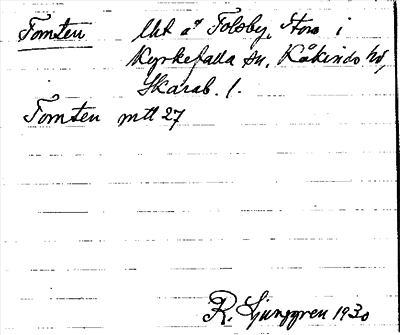 Tomten Uht å Tolsby, Stora i
Kyrkefalla sn, Kåkinds hd,
Skarab. l.
Tomten mtl 27
R. Ljunggren 1930